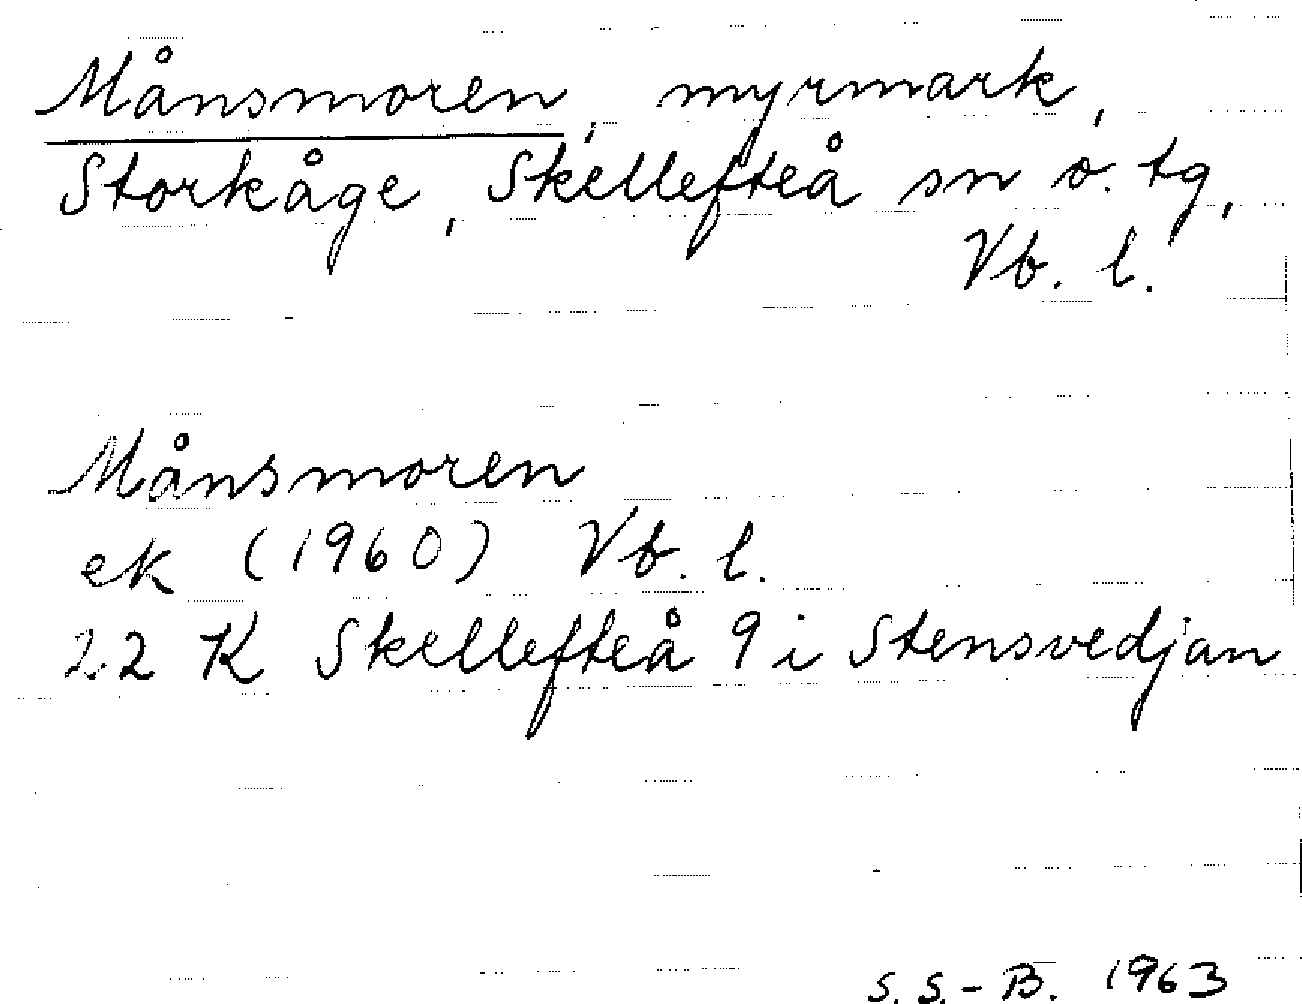 Månsmoren, myrmark,
Storkåge, Skellefteå sn o. tg,
Vb. l.
Månsmoren
ek (1960) Vb. l.
22 K Skellefteå 9 i Stensvedjan
S. S.-B. 1963